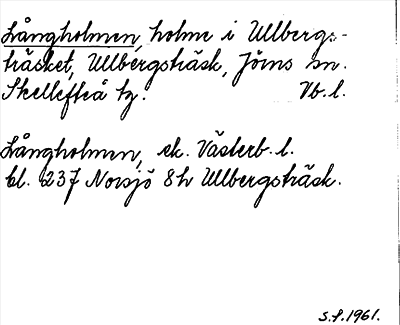 Långholmen, holme i Ullbergs-
träsket, Ullbergsträsk, Jörns sn.
Skellefteå tg. Vb. l.
Långholmen, ek. Västerb. l.
bl. 237 Norsjö 8h Ullbergsträsk.
S.P. 1961.